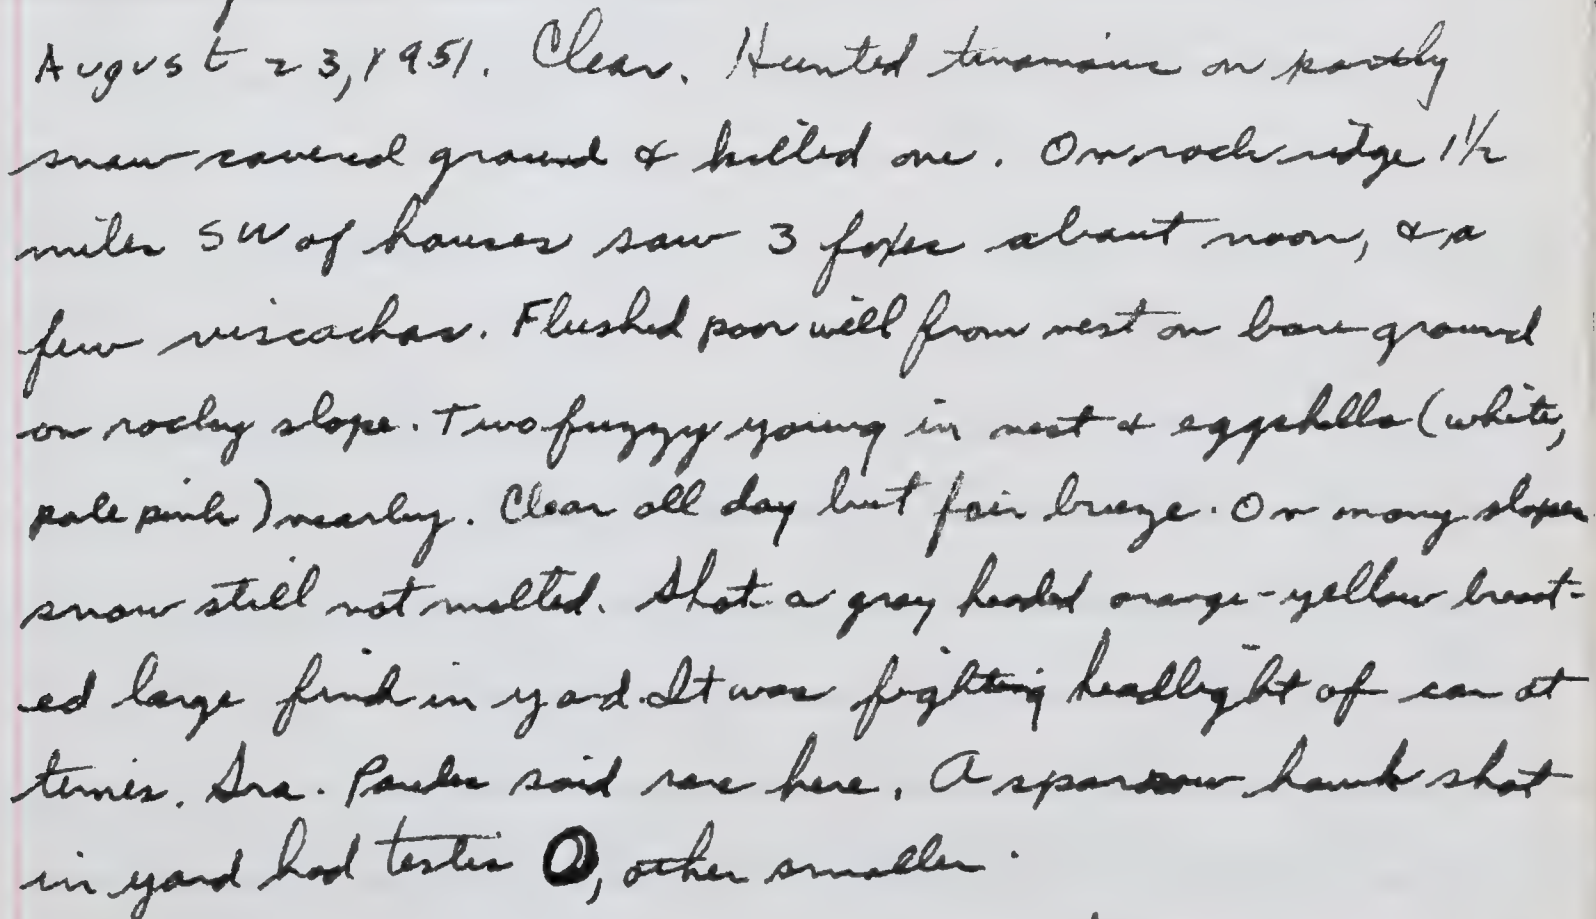 August 23, 1951. Clear. Hunted tinamous on partly
snow covered ground & killed one. On rock ridge 1½
miles SW of houses saw 3 foxes about noon, & a
few viscachas. Flushed poor will from nest on bare ground
on rocky slope. Two fuzzy young in nest & eggshells (white,
pale pink) nearby. Clear all day but fair breeze. On many slopes
snow still not melted. Shot a gray headed orange-yellow breast-
ed large finch in yard. It was fighting headlight of car at
times. Sra. said rare here. A sparrow hawk shot
in yard had testis, other smaller.